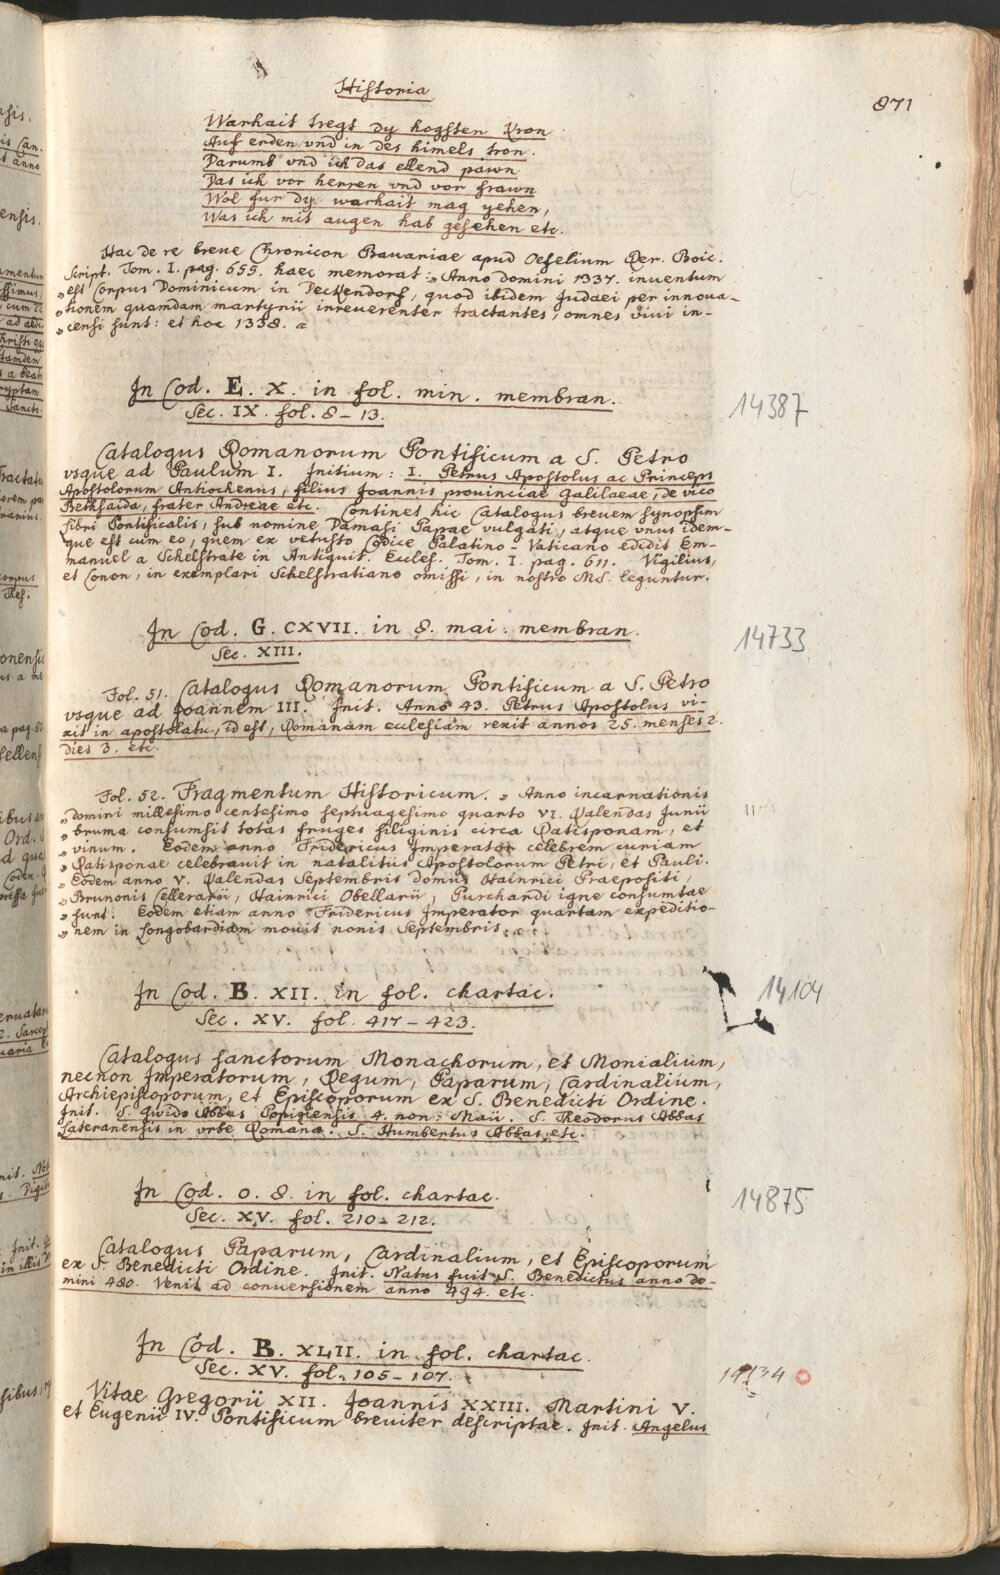 Historia
871
Warhait tregt dy hogsten Kron
Auf erden vnd in des himels tron.
Darumb vnd ich das ellend pawn
Das ich vor herren vnd vor frawn
Wol fur dy warhait mag yehen,
Was ich mit augen hab gesehen etc.
Hac de re breue Chronicon Bauariae apud Oefelium Rer. Boic.
Script. Tom. I. pag. 655. haec memorat: „Anno domini 1337. inuentum
„est Corpus Dominicum in Deckendorf, quod ibidem Judaei per innoua-
„tionem quamdam martyrii irreuerenter tractantes, omnes viui in-
„censi sunt: et hoc 1338. "
In Cod. E. X. in fol. min. membran.
14387
Sec. IX. fol. 8-13.
Catalogus Romanorum Pontificum a S. Petro
vsque ad Paulum I. Initium: I. Petrus Apostolus ac Princeps
Apostolorum Antiochenus, filius Joannis prouinciae Galilaeae, de vico
Bethsaida, frater Andreae etc. Continet hic Catalogus breuem synopsim
libri Pontificalis, sub nomine Damasi Papae vulgati, atque vnus idem-
que est cum eo, quem ex vetusto Codice Palatino-Vaticano edidit Em-
manuel a Schelstrate in Antiquit. Eccles. Tom. I. pag. 611. Vigilius,
et Conon, in exemplari Schelstratiano omissi, in nostro MS. leguntur.
In Cod. G. CXVII. in 8. mai. membran.
14733
Sec. XIII.
Fol. 51. Catalogus Romanorum Pontificum a S. Petro
vsque ad Joannem III. Init. Anno 43. Petrus Apostolus vi-
xit in apostolatu, id est, Romanam ecclesiam rexit annos 25. menses 2.
dies 3. etc.
Fol. 52. Fragmentum Historicum. „Anno incarnationis
„domini millesimo centesimo septuagesimo quarto VI. Kalendas Junii
„bruma consumsit totas fruges siliginis circa Ratisponam, et
„vinum. Eodem anno Fridericus Imperator celebrem curiam
„Ratisponae celebrauit in natalitiis Apostolorum Petri, et Pauli.
„Eodem anno V. Kalendas Septembris domus Hainrici Praepositi,
„Brunonis Cellerarii, Hainrici Obellarii, Purchardi igne consumtae
„sunt. Eodem etiam anno Fridericus Imperator quartam expeditio-
„nem in Longobardiam mouit nonis Septembris. "
In Cod. B. XII. in fol. chartac.
14104
Sec. XV. fol. 417-423.
Catalogus sanctorum Monachorum, et Monialium,
necnon Imperatorum, Regum, Paparum, Cardinalium,
Archiepiscoporum, et Episcoporum ex S. Benedicti Ordine.
Init. S. Gwido Abbas 4. non: Maii. S. Theodorus Abbas
Lateranensis in vrbe Romana. S. Humbertus Abbas etc.
In Cod. O. 8. in fol. chartac.
14875
Sec. XV. fol. 210-212.
Catalogus Paparum, Cardinalium, et Episcoporum
ex S. Benedicti Ordine. Init. Natus fuit S. Benedictus anno do-
mini 480. Venit ad conuersionem anno 494. etc.
In Cod. B. XLII. in fol. chartac.
Sec. XV. fol. 105-107.
14134
Vitae Gregorii XII. Joannis XXIII. Martini V.
et Eugenii IV. Pontificum breuiter descriptae. Init. Angelus